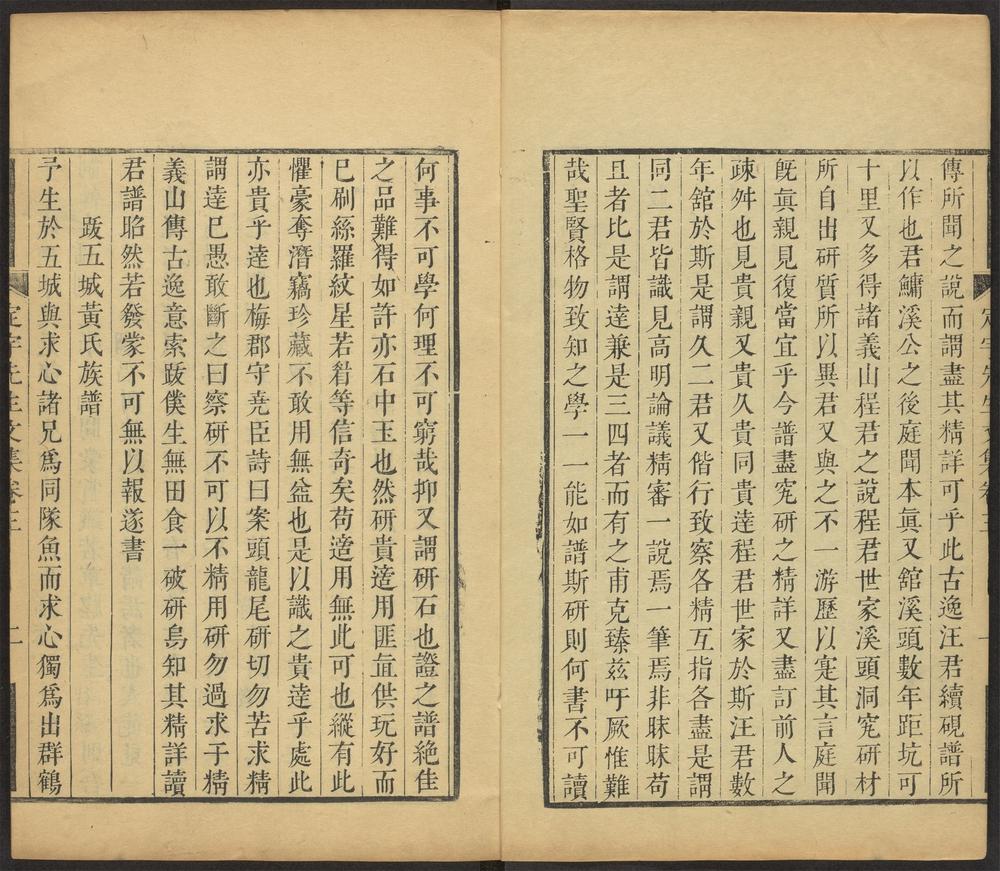 傳所聞之說而謂盡其精詳可乎此古逸汪君續硯譜所
以作也君鱅溪公之後庭聞本眞又舘溪頭數年距坑可
十里又多得諸義山程君之說程君世家溪頭洞究硏材
所自出硏質所以異君又與之不一游歷以寔其言庭聞
旣眞親見復當宜乎今譜盡究硏之精詳又盡訂前人之
疎舛也見貴親又貴久貴同貴達程君世家於斯汪君數
年舘於斯是謂久二君又偕行致察各精互指各盡是謂
同二君皆識見高明論議精審一說焉一筆焉非昧昧苟
且者比是謂達兼是三四者而有之甫克臻茲吁厥惟難
哉聖賢格物致知之學一一能如譜斯硏則何書不可讀
何事不可學何理不可窮哉抑又謂硏石也證之譜絶佳
之品難得如許亦石中玉也然硏貴適用匪亶供玩好而
已刷絲羅紋星若眉等信奇矣苟適用無此可也縱有此
懼豪奪濳竊珍藏不敢用無益也是以識之貴達乎處此
亦貴乎達也梅郡守堯臣詩曰案頭龍尾硏切勿苦求精
謂達已愚敢斷之曰察硏不可以不精用硏勿過求于精
義山傳古逸意索䟦僕生無田食一破硏烏知其精詳讀
君譜昭然若發蒙不可無以報遂書
䟦五城黃氏族譜
予生於五城與求心諸兄爲同隊魚而求心獨爲出群鶴
定宇先生文集卷三
二